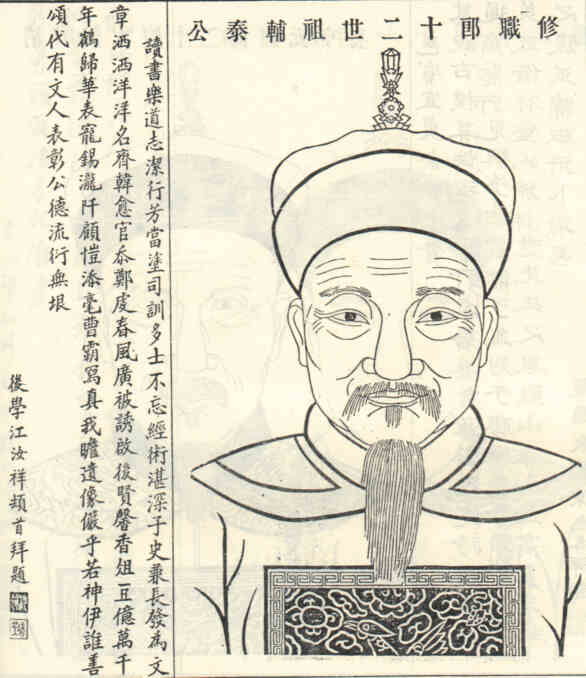 修職郎十二世祖輔泰公
讀書樂道志潔行芳當塗司訓多士不忘經術湛深子史兼長發為文
章洒洒洋洋名齊韓愈官忝鄭虔春風廣被誘啟後賢馨香俎豆億萬千
年鶴歸華表寵錫瀧阡顧愷添毫曹霸寫真我瞻遺像儼乎若神伊誰善
頌代有文人表彰公德流衍無垠
後學江汝祥頓首拜題